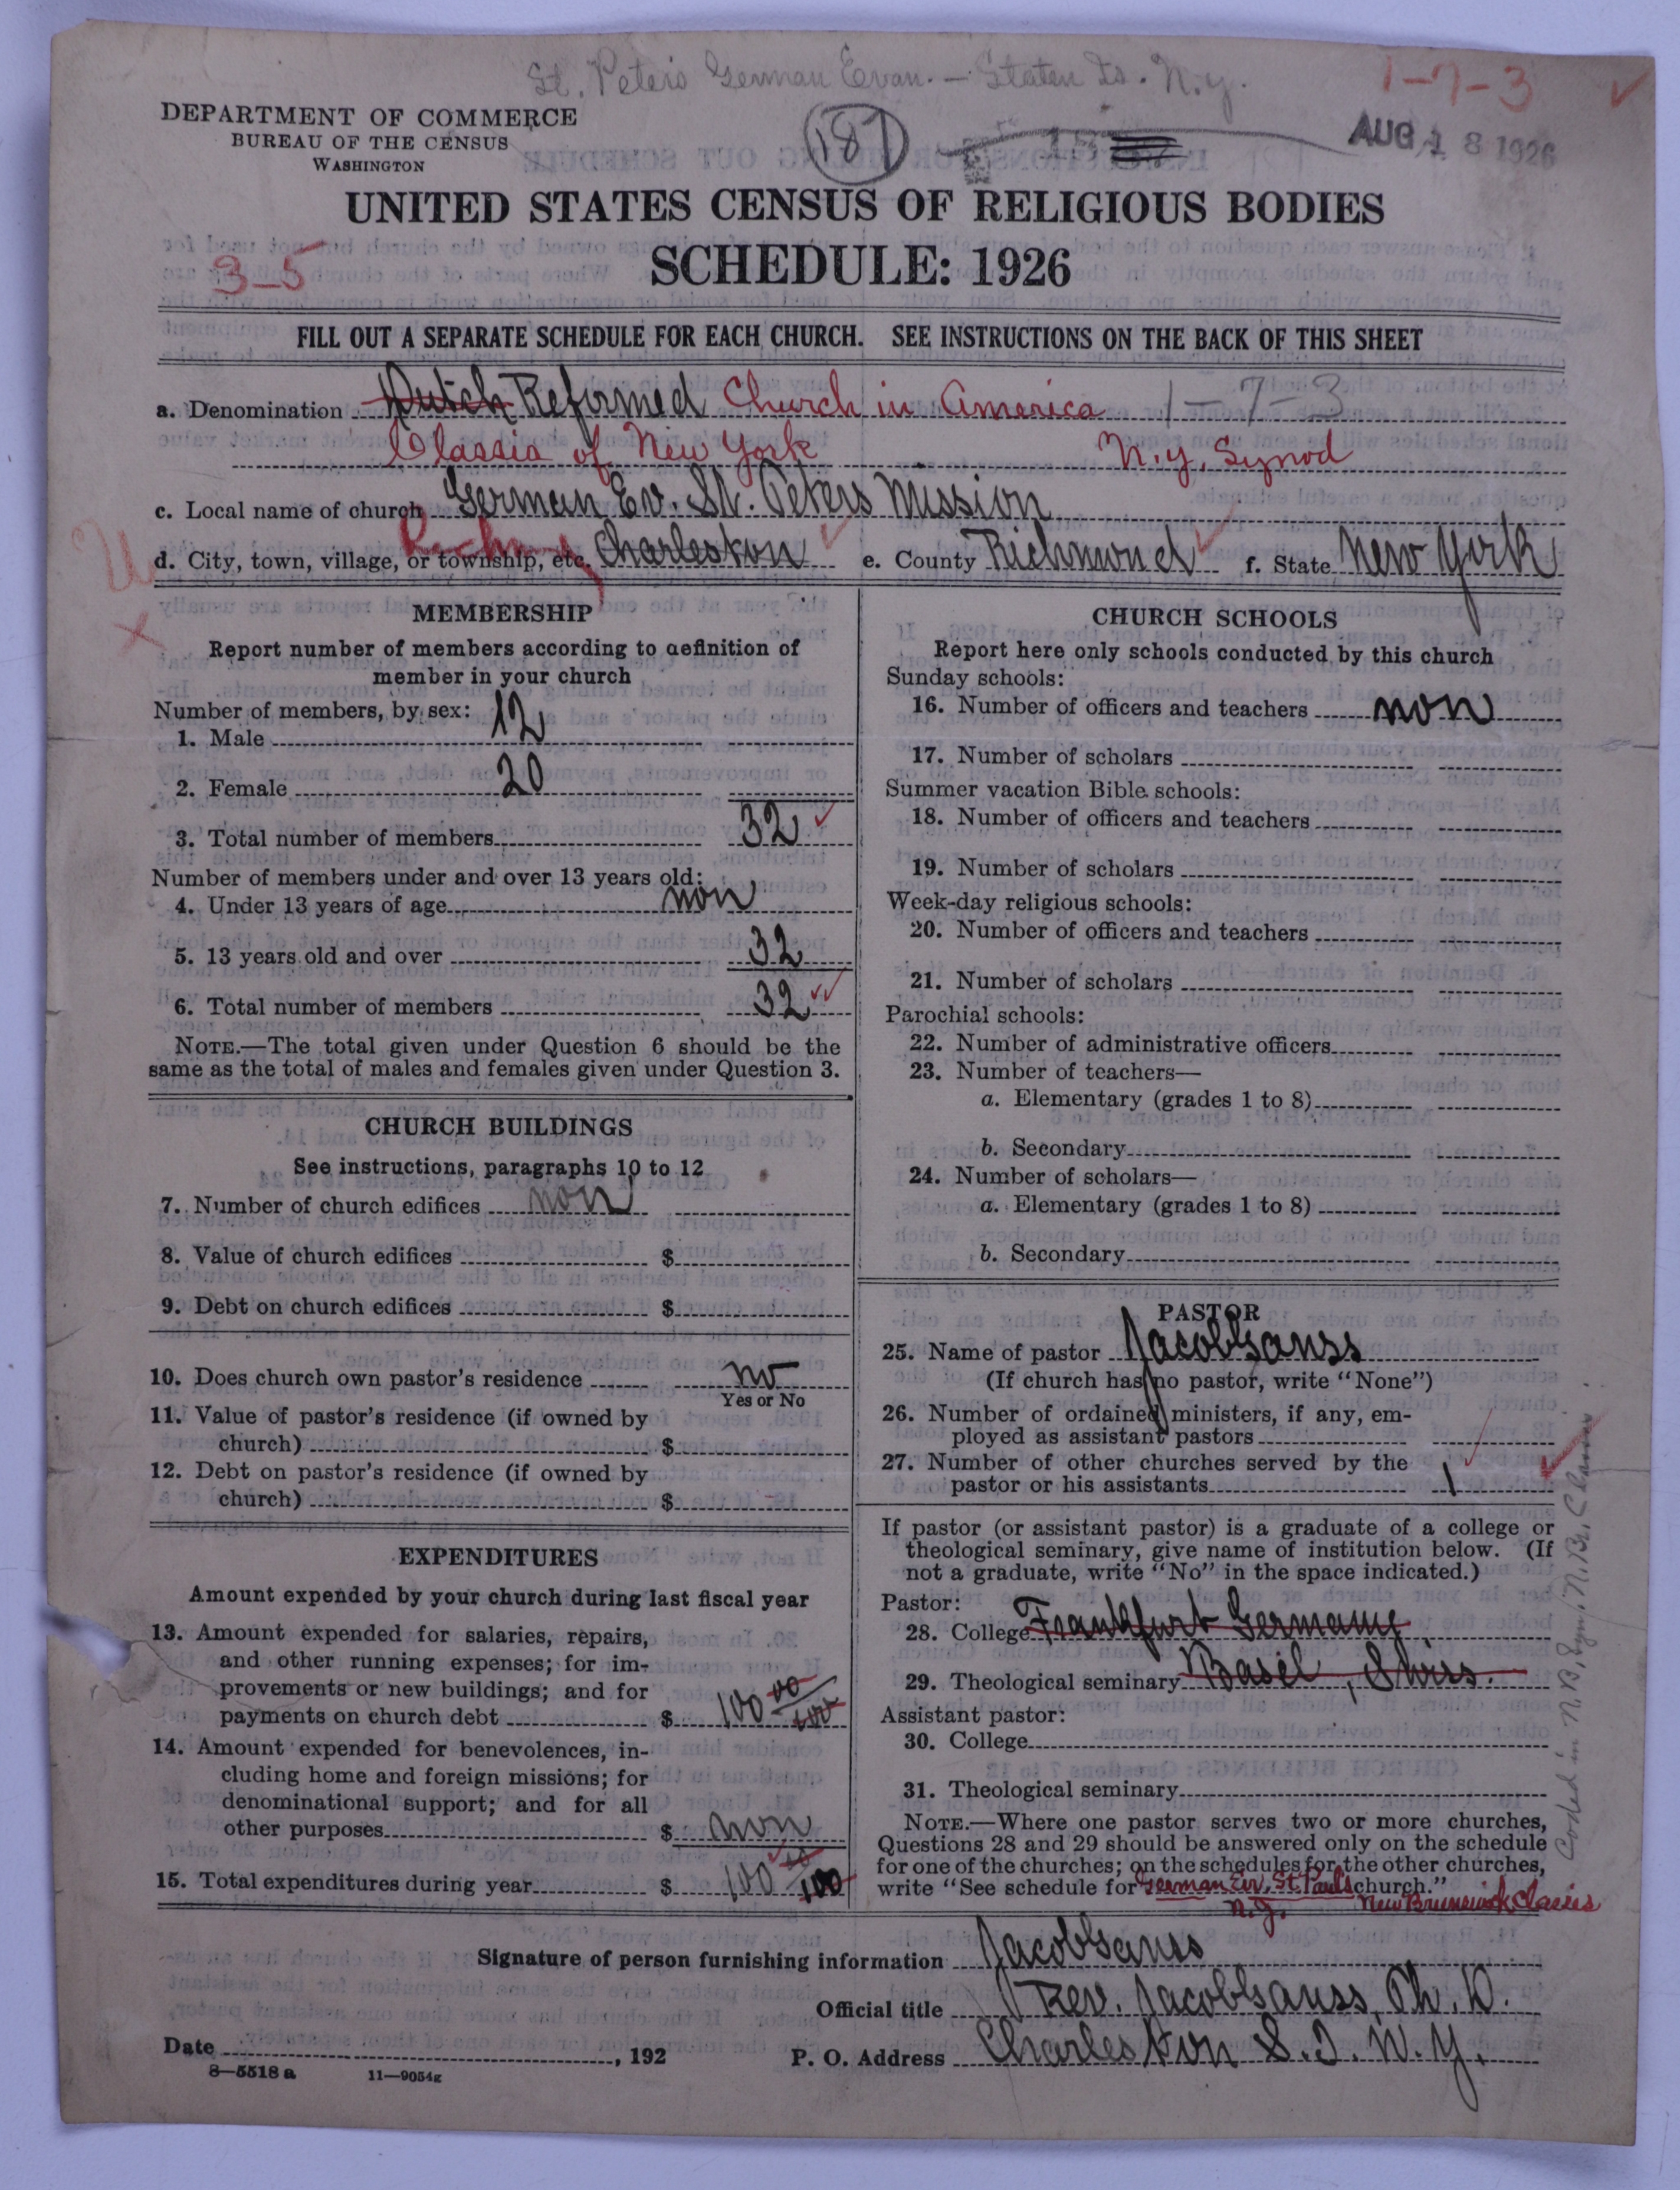 St. Peter's German Evan. — Staten Is. N.Y.
1-7-3
DEPARTMENT OF COMMERCE
BUREAU OF THE CENSUS
WASHINGTON
187
AUG 18 1926
UNITED STATES CENSUS OF RELIGIOUS BODIES
SCHEDULE: 1926
3-5
FILL OUT A SEPARATE SCHEDULE FOR EACH CHURCH. SEE INSTRUCTIONS ON THE BACK OF THIS SHEET
a. Denomination Dutch Reformed Church in America 1-7-3
Classis of New York N.Y. Synod
c. Local name of church German Ev. St. Peters Mission
d. City, town, village, or township, etc. Charleston e. County Richmond f. State New York
MEMBERSHIP
Report number of members according to definition of
member in your church
Number of members, by sex:
1. Male 12
2. Female 20
3. Total number of members 32
Number of members under and over 13 years old:
4. Under 13 years of age non
5. 13 years old and over 32
6. Total number of members 32
NOTE.—The total given under Question 6 should be the
same as the total of males and females given under Question 3.
CHURCH BUILDINGS
See instructions, paragraphs 10 to 12
7. Number of church edifices non
8. Value of church edifices $
9. Debt on church edifices $
10. Does church own pastor's residence no
Yes or No
11. Value of pastor's residence (if owned by
church) $
12. Debt on pastor's residence (if owned by
church) $
EXPENDITURES
Amount expended by your church during last fiscal year
13. Amount expended for salaries, repairs,
and other running expenses; for im-
provements or new buildings; and for
payments on church debt $ 100 00/100
14. Amount expended for benevolences, in-
cluding home and foreign missions; for
denominational support; and for all
other purposes $ non
15. Total expenditures during year $ 100 00/100
CHURCH SCHOOLS
Report here only schools conducted by this church
Sunday schools:
16. Number of officers and teachers non
17. Number of scholars
Summer vacation Bible schools:
18. Number of officers and teachers
19. Number of scholars
Week-day religious schools:
20. Number of officers and teachers
21. Number of scholars
Parochial schools:
22. Number of administrative officers
23. Number of teachers—
a. Elementary (grades 1 to 8)
b. Secondary
24. Number of scholars—
a. Elementary (grades 1 to 8)
b. Secondary
PASTOR
25. Name of pastor Jacob Ganss
(If church has no pastor, write "None")
26. Number of ordained ministers, if any, em-
ployed as assistant pastors
27. Number of other churches served by the
pastor or his assistants 1
If pastor (or assistant pastor) is a graduate of a college or
theological seminary, give name of institution below. (If
not a graduate, write "No" in the space indicated.)
Pastor:
28. College Frankfurt Germany
29. Theological seminary Basel, Swiss.
Assistant pastor:
30. College
31. Theological seminary
NOTE.—Where one pastor serves two or more churches,
Questions 28 and 29 should be answered only on the schedule
for one of the churches; on the schedules for the other churches,
write "See schedule for German Ev. St. Pauls church."
N.J. New Brunswick Classis
Coded in N.B. Syn. N.Br. Classis
Signature of person furnishing information Jacob Ganss
Official title Rev. Jacob Ganss, Ph. D.
Date , 192
P. O. Address Charleston S. I. N. Y.
8—5518 a 11—9054g